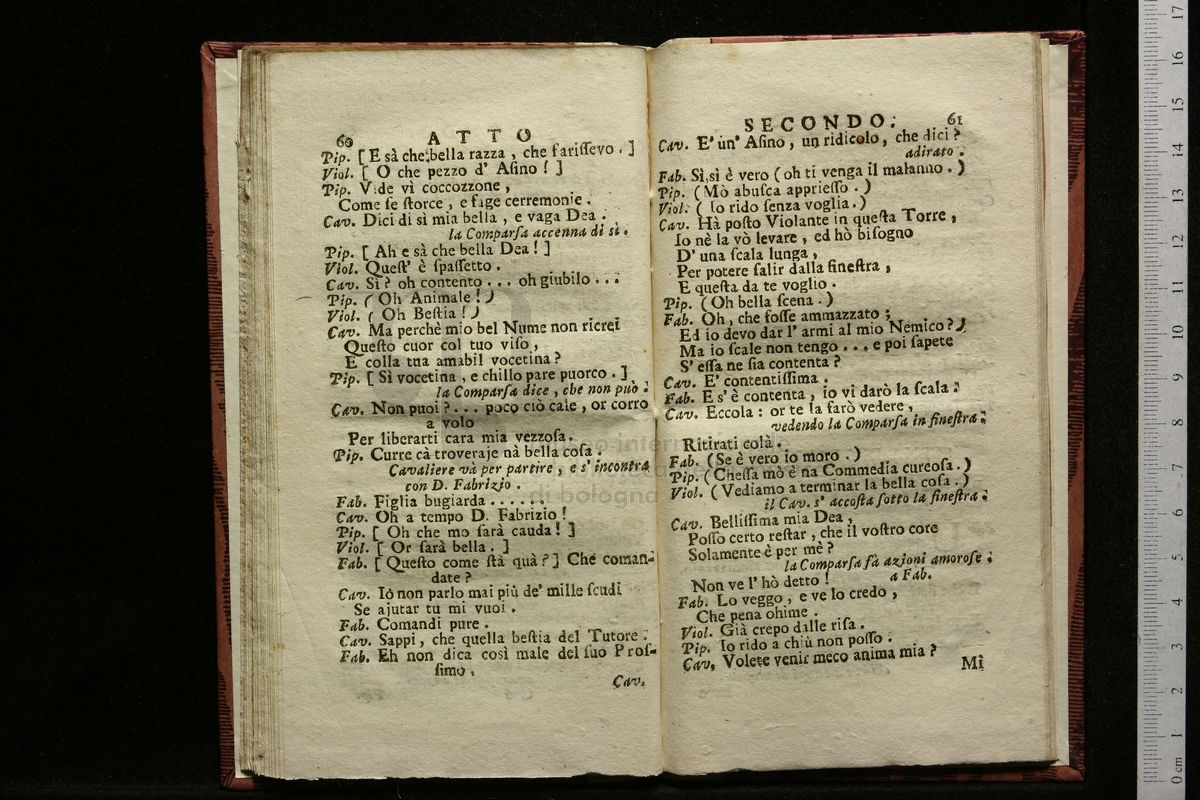 60 ATTO
Pip. [ E sà che bella razza , che farissevo . ]
Viol. [ O che pezzo d' Asino ! ]
Pip. Vide vì coccozzone ,
Come se storce , e fage cerremonie .
Cav. Dici di sì mia bella , e vaga Dea .
la Comparsa accenna di sì .
Pip. [ Ah e sà che bella Dea ! ]
Viol. Quest' è spassetto .
Cav. Sì ? oh contento . . . oh giubilo . . .
Pip. ( Oh Animale ! )
Viol. ( Oh Bestia ! )
Cav. Ma perchè mio bel Nume non ricrei
Questo cuor col tuo viso ,
E colla tua amabil vocetina ?
Pip. [ Sì vocetina , e chillo pare puorco . ]
la Comparsa dice , che non può .
Cav. Non puoi ? . . . poco ciò cale , or corro
a volo
Per liberarti cara mia vezzosa .
Pip. Curre cà troveraje nà bella cosa .
Cavaliere và per partire , e s' incontra
con D. Fabrizio .
Fab. Figlia bugiarda . . . . . .
Cav. Oh a tempo D. Fabrizio !
Pip. [ Oh che mo sarà cauda ! ]
Viol. [ Or sarà bella . ]
Fab. [ Questo come stà quà ? ] Che coman-
date ?
Cav. Iò non parlo mai più de' mille scudi
Se ajutar tu mi vuoi .
Fab. Comandi pure .
Cav. Sappi , che quella bestia del Tutore .
Fab. Eh non dica così male del suo Pros-
simo ,
Cav.
SECONDO. 61
Cav. E' un' Asino , un ridicolo , che dici ?
adirato .
Fab. Sì,sì è vero ( oh ti venga il malanno . )
Pip. ( Mò abusca appriesso . )
Viol. ( Io rido senza voglia . )
Cav. Hà posto Violante in questa Torre ,
Io nè la vò levare , ed hò bisogno
D' una scala lunga ,
Per potere salir dalla finestra ,
E questa da te voglio .
Pip. ( Oh bella scena . )
Fab. Oh , che fosse ammazzato ;
Ed io devo dar l' armi al mio Nemico ? )
Ma io scale non tengo . . . e poi sapete
S' essa ne sia contenta ?
Cav. E' contentissima .
Fab. E s' è contenta , io vi darò la scala .
Cav. Eccola : or te la farò vedere ,
vedendo la Comparsa in finestra .
Ritirati colà .
Fab. ( Se è vero io moro . )
Pip. ( Chessa mò è na Commedia cureosa . )
Viol. ( Vediamo a terminar la bella cosa . )
il Cav. s' accosta sotto la finestra .
Cav. Bellissima mia Dea ,
Posso certo restar , che il vostro core
Solamente è per mè ?
la Comparsa fà azioni amorose .
Non ve l' hò detto ! a Fab.
Fab. Lo veggo , e ve lo credo ,
Che pena ohime .
Viol. Già crepo dalle risa .
Pip. Io rido a chiù non posso .
Cav. Volete venir meco anima mia ?
Mì
di bologna
0 cm 1 2 3 4 5 6 7 8 9 10 11 12 13 14 15 16 17